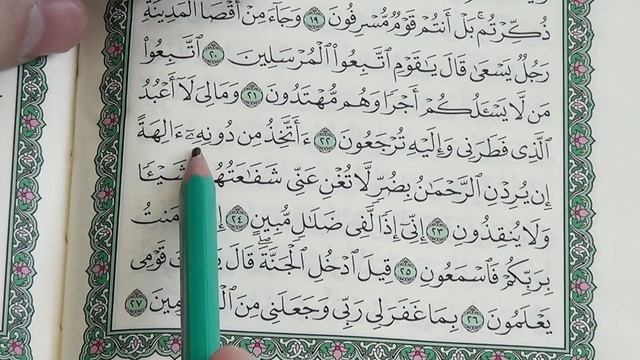 ذُكِّرْتُم بَلْ أَنتُمْ قَوْمٌ مُّسْرِفُونَ ١٩ وَجَآءَ مِنْ أَقْصَا ٱلْمَدِينَةِ
رَجُلٌ يَسْعَىٰ قَالَ يَـٰقَوْمِ ٱتَّبِعُوا۟ ٱلْمُرْسَلِينَ ٢٠ ٱتَّبِعُوا۟
مَن لَّا يَسْـَٔلُكُمْ أَجْرًا وَهُم مُّهْتَدُونَ ٢١ وَمَالِىَ لَآ أَعْبُدُ
ٱلَّذِى فَطَرَنِى وَإِلَيْهِ تُرْجَعُونَ ٢٢ ءَأَتَّخِذُ مِن دُونِهِۦٓ ءَالِهَةً
إِن يُرِدْنِ ٱلرَّحْمَـٰنُ بِضُرٍّ لَّا تُغْنِ عَنِّى شَفَـٰعَتُهُمْ شَيْـًٔا
وَلَا يُنقِذُونِ ٢٣ إِنِّىٓ إِذًا لَّفِى ضَلَـٰلٍ مُّبِينٍ ٢٤
بِرَبِّكُمْ فَٱسْمَعُونِ ٢٥ قِيلَ ٱدْخُلِ ٱلْجَنَّةَ قَالَ قَوْمِى
يَعْلَمُونَ ٢٦ بِمَا غَفَرَ لِى رَبِّى وَجَعَلَنِى مِنَ ٢٧